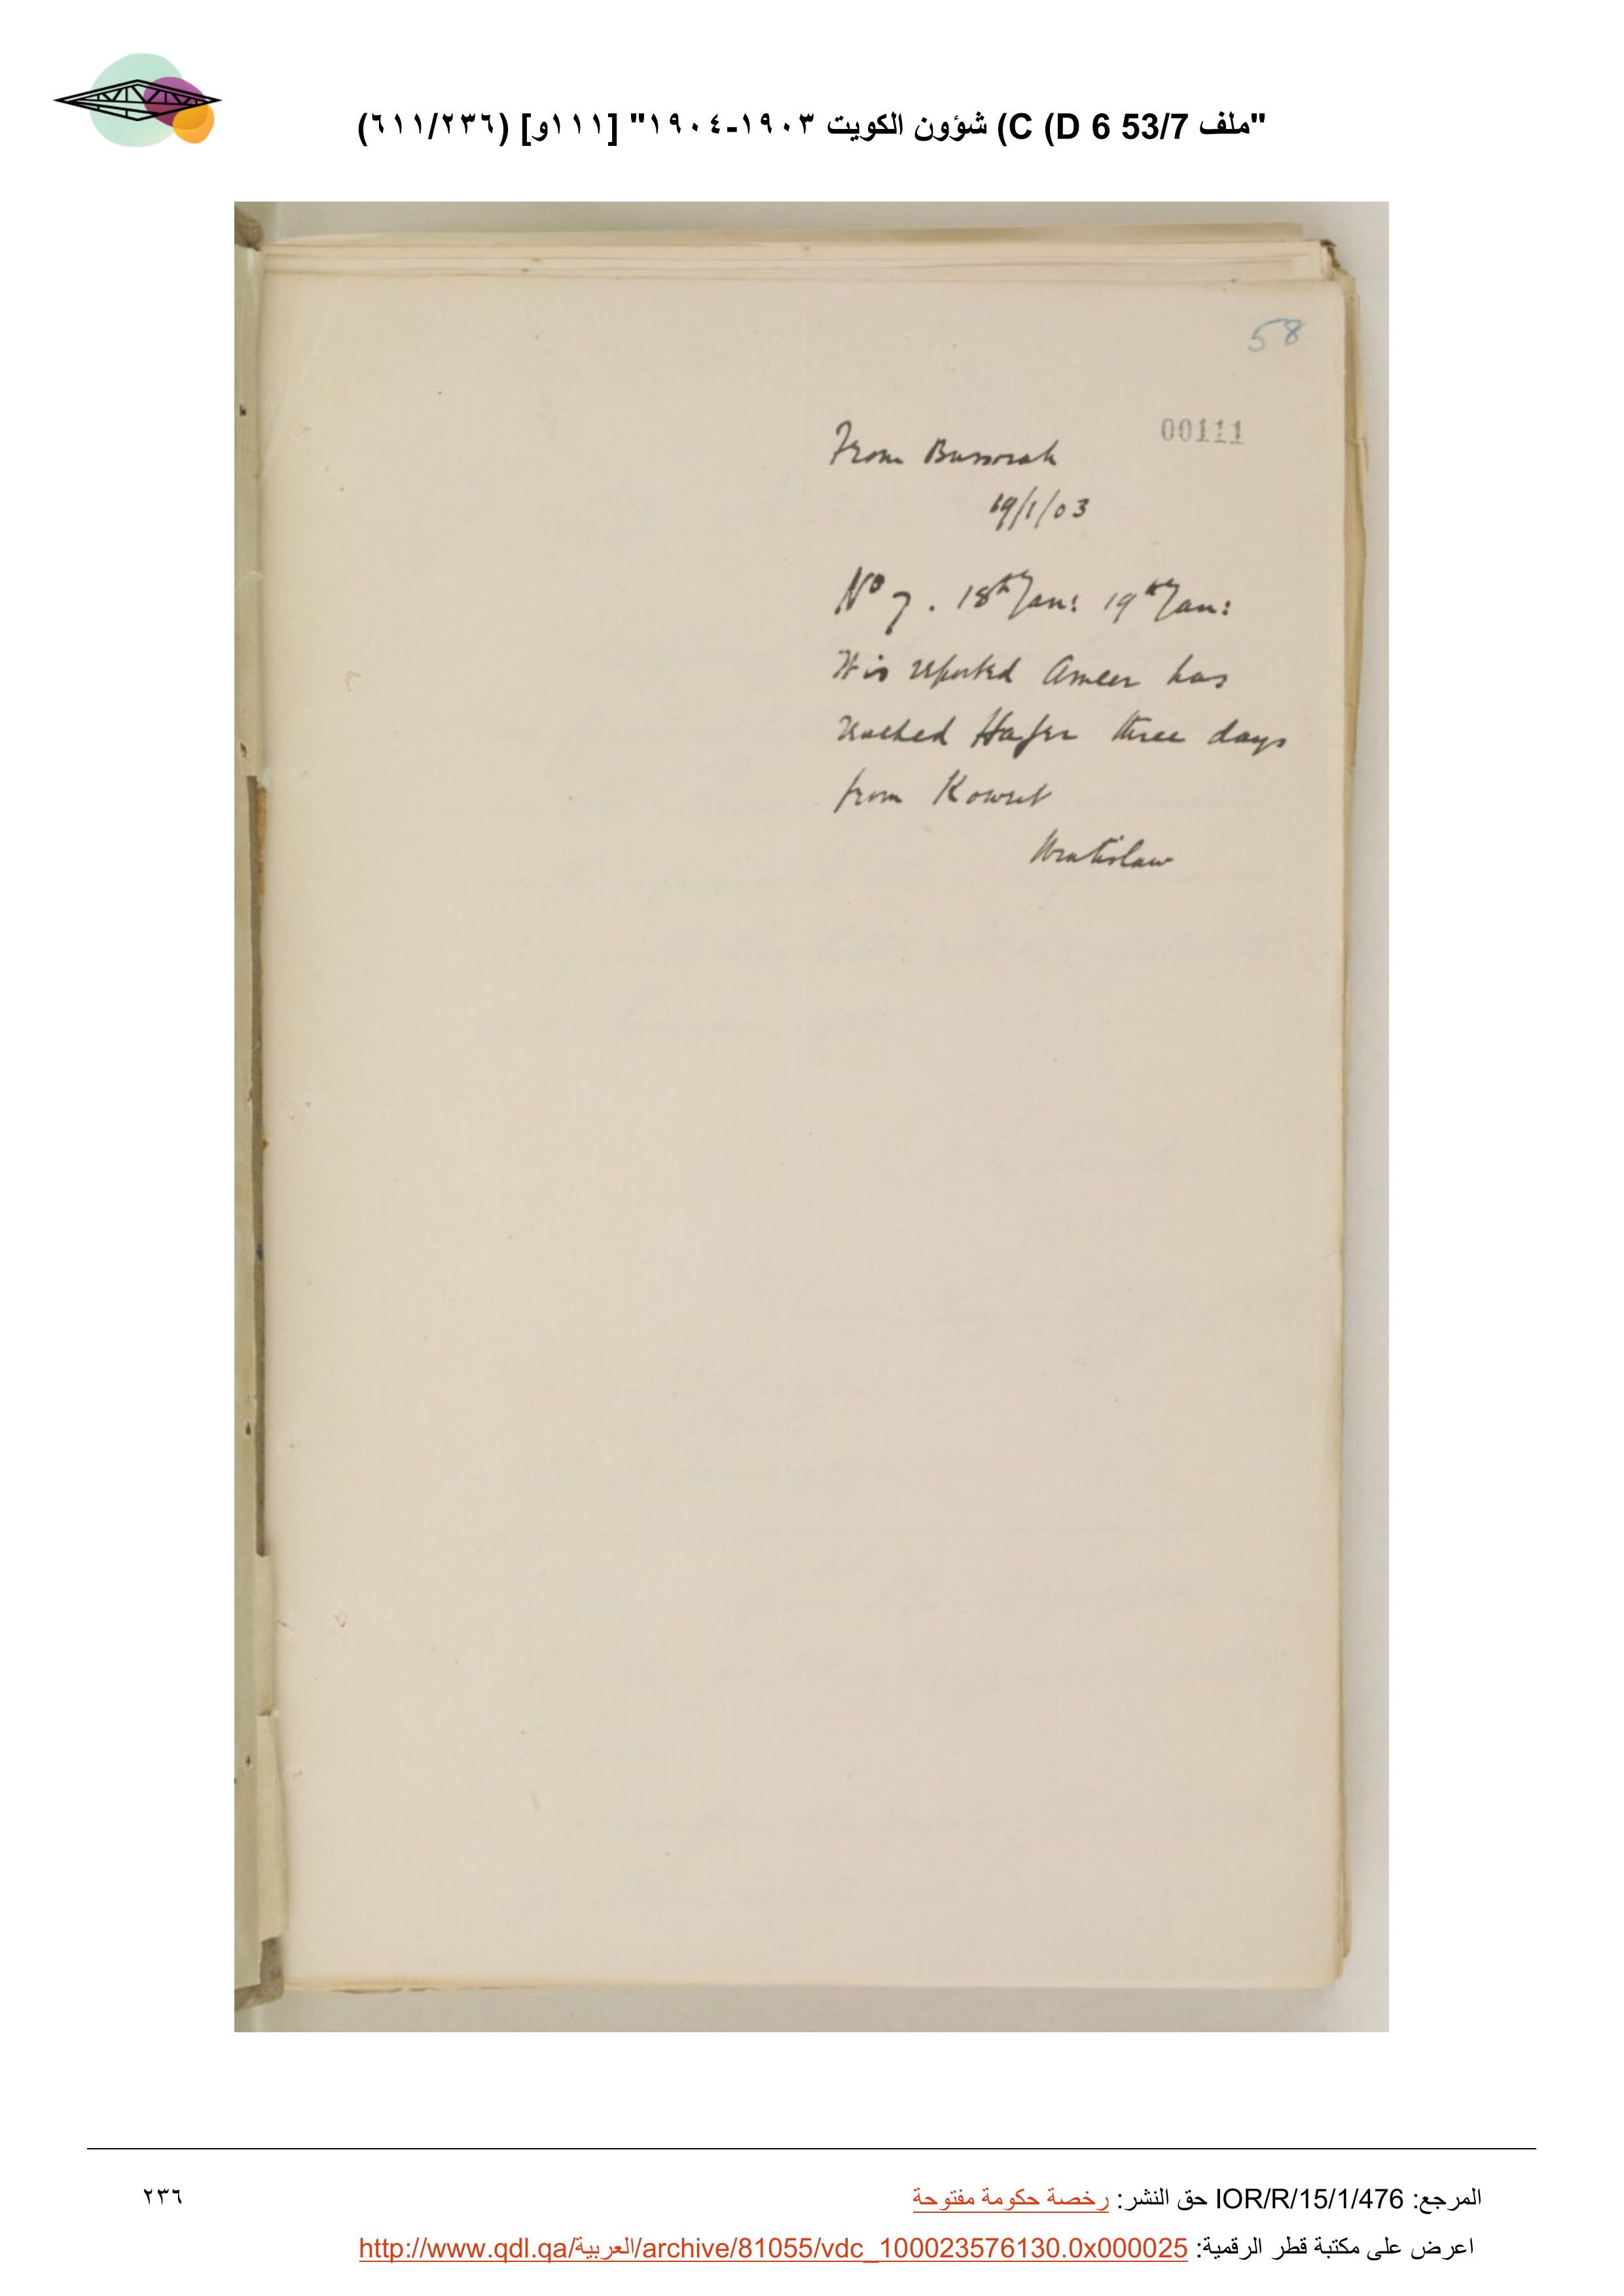 "ملف 53/7 C (D 6) شؤون الكويت ١٩٠٣-١٩٠٤" [١١١و] (٦١١/٢٣٦)
58
00111
From Bussorah
19/1/03
No 7. 18th Jan: 19th Jan:
It is reported Ameer has
reached Hafer three days
from Koweit
Wratislaw
المرجع: IOR/R/15/1/476 حق النشر: رخصة حكومة مفتوحة
٢٣٦
اعرض على مكتبة قطر الرقمية: http://www.qdl.qa/العربية/archive/81055/vdc_100023576130.0x000025